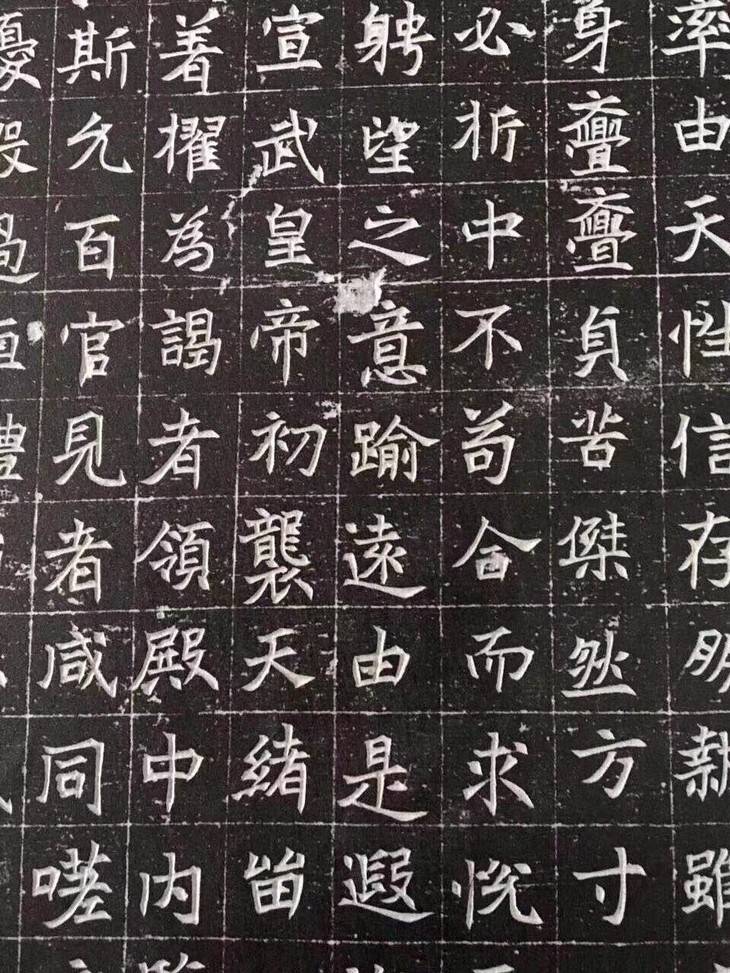 率由天性信存明執雖
身亹亹貞苦傑然方寸
必折中不苟合而求悅
聘望之意踰遠由是遐
宣武皇帝初襲天緒畄
著擢為謁者領殿中內
斯允百官見者咸同嗟
過禮